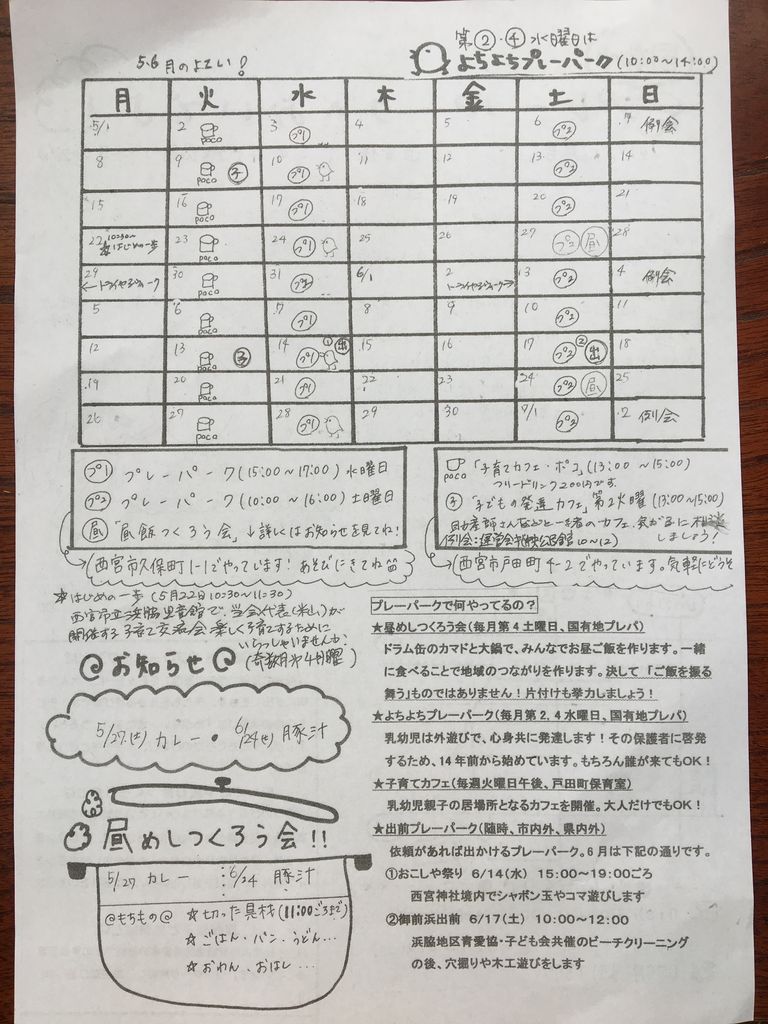 5.6月のよてい!
第②・④水曜日は
よちよちプレーパーク(10:00~14:00)
月 火 水 木 金 土 日
5/1 2 poco 3 プ1 4 5 6 プ2 7 例会
8 9 poco 子 10 プ1 11 12 13 プ2 14
15 16 poco 17 プ1 18 19 20 プ2 21
22 10:30~ はじめの一歩 23 poco 24 プ1 25 26 27 プ2 昼 28
29 ←トライやるウィーク 30 poco 31 プ1 6/1 2 トライやるウィーク→ 3 プ2 4 例会
5 6 poco 7 プ1 8 9 10 プ2 11
12 13 poco 子 14 プ1 ① 出 15 16 17 プ2 ② 出 18
19 20 poco 21 プ1 22 23 24 プ2 昼 25
26 27 poco 28 プ1 29 30 7/1 プ2 2 例会
プ1 プレーパーク(15:00~17:00)水曜日
プ2 プレーパーク(10:00~16:00)土曜日
昼 「昼飯つくろう会」↓詳しくはお知らせを見てね!
西宮市久保町1-1でやっています!あそびにきてね
poco 「子育てカフェ・ポコ」(13:00~15:00)
フリードリンク200円です
子 「子どもの発達カフェ」第2火曜(13:00~15:00)
助産師さんなどと一緒のカフェ。気がるに相談
しましょう!
例会:運営会 公民館10~12)
西宮市戸田町4-2でやっています。気軽にどうぞ
☆はじめの一歩(5月22日10:30~11:30)
西宮市立浜脇児童館で、当会代表(米山)が
開催する子育て交流会。楽しく子育てするために
いらっしゃいませんか?
(奇数月第4月曜)
@お知らせ@
5/27(土)カレー・6/24(土)豚汁
昼めしつくろう会!!
5/27 カレー 6/24 豚汁
@もちもの@ ☆切った具材(11:00ごろまで)
☆ごはん・パン・うどん…
☆おわん、おはし…
プレーパークで何やってるの?
★昼めしつくろう会(毎月第4土曜日、国有地プレパ)
ドラム缶のカマドと大鍋で、みんなでお昼ご飯を作ります。一緒
に食べることで地域のつながりを作ります。決して「ご飯を振る
舞う」ものではありません!片付けも挙力しましょう!
★よちよちプレーパーク(毎月第2,4水曜日、国有地プレパ)
乳幼児は外遊びで、心身共に発達します!その保護者に啓発
するため、14年前から始めています。もちろん誰が来てもOK!
★子育てカフェ(毎週火曜日午後、戸田町保育室)
乳幼児親子の居場所となるカフェを開催。大人だけでもOK!
★出前プレーパーク(随時、市内外、県内外)
依頼があれば出かけるプレーパーク。6月は下記の通りです。
①おこしや祭り 6/14(水) 15:00~19:00ごろ
西宮神社境内でシャボン玉やコマ遊びします
②御前浜出前 6/17(土) 10:00~12:00
浜脇地区青愛協・子ども会共催のビーチクリーニング
の後、穴掘りや木工遊びをします